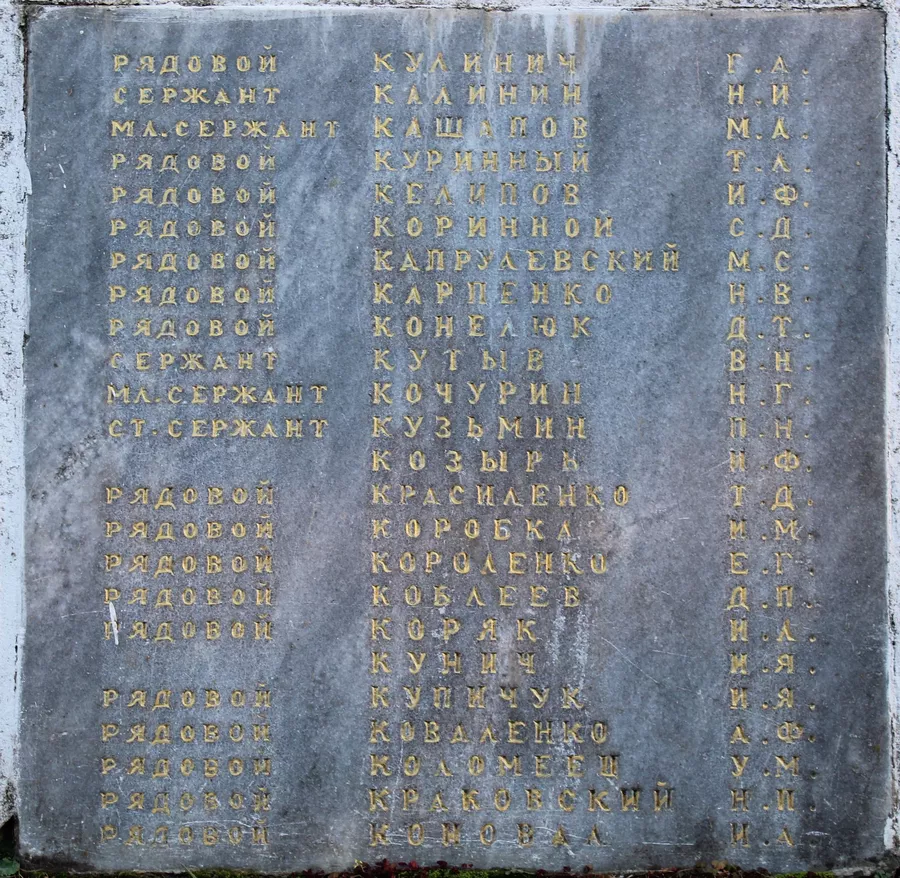 РЯДОВОЙ КУЛИНИЧ Г.А.
СЕРЖАНТ КАЛИНИН Н.И.
МЛ.СЕРЖАНТ КАШАПОВ М.А.
РЯДОВОЙ КУРИННЫЙ Т.Л.
РЯДОВОЙ КЕЛИПОВ И.Ф.
РЯДОВОЙ КОРИННОЙ С.Д.
РЯДОВОЙ КАПРУЛЕВСКИЙ М.С.
РЯДОВОЙ КАРПЕНКО Н.В.
РЯДОВОЙ КОНЕЛЮК Д.Т.
СЕРЖАНТ КУТЫВ В.Н.
МЛ.СЕРЖАНТ КОЧУРИН Н.Г.
СТ.СЕРЖАНТ КУЗЬМИН П.Н.
КОЗЫРЬ И.Ф.
РЯДОВОЙ КРАСИЛЕНКО Т.Д.
РЯДОВОЙ КОРОБКА И.М.
РЯДОВОЙ КОРОЛЕНКО Е.Г.
РЯДОВОЙ КОБЛЕЕВ Д.П.
РЯДОВОЙ КОРЯК И.Л.
КУНИЧ И.Я.
РЯДОВОЙ КУПИЧУК И.Я.
РЯДОВОЙ КОВАЛЕНКО А.Ф.
РЯДОВОЙ КОЛОМЕЕЦ У.М.
РЯДОВОЙ КРАКОВСКИЙ Н.И.
РЯДОВОЙ КОНОВАЛ И.А.